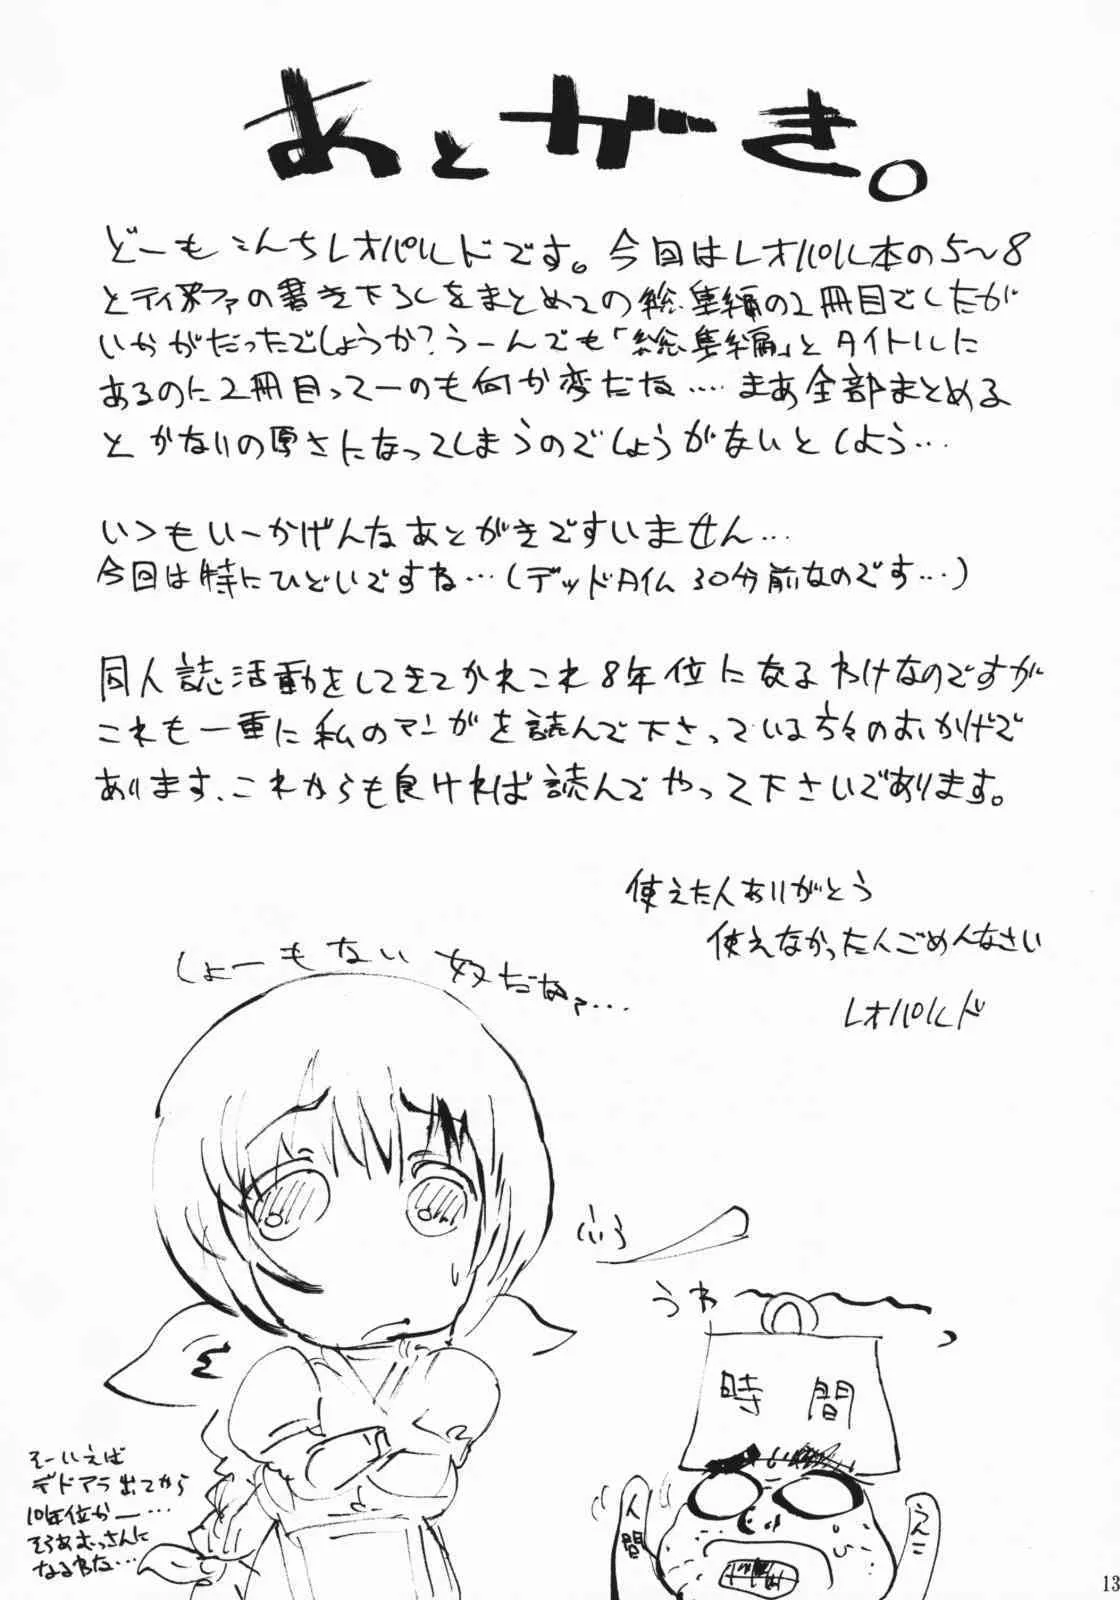 あとがき。
どーもこんちレオパルドです。今回はレオパル本の5〜8
とティファの書き下ろしをまとめての総集編の2冊目でしたが
いかがだったでしょうか?うーんでも「総集編」とタイトルに
あるのに2冊目ってーのも何か変だな……まあ全部まとめる
とかないの厚さになってしまうのでしょうがないとしよう…
いつもいーかげんなあとがきですいません…
今回は特にひどいですね…(デッドタイム30分前なのです…)
同人誌活動をしてきてかれこれ8年位になるわけなのですが
これも一重に私のマンガを読んで下さっている方々のおかげで
あります、これからも良ければ読んでやって下さいであります。
使えた人ありがとう
使えなかった人ごめんなさい
レオパルド
しょーもない奴だなァ…
うわ
時間
人間
そーいえば
デドアラ出てから
10年位かー…
そろあむっさんに
なるわな…
13